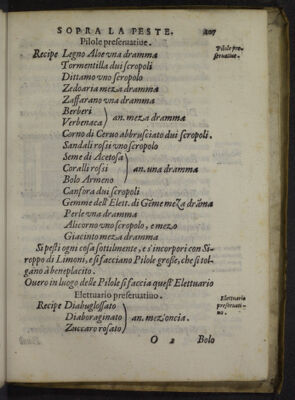 SOPRA LA PESTE. 107
Pilole preseruatiue.
Pilole pre-
seruatiue.
Recipe Legno Aloe vna dramma
Tormentilla dui scropoli
Dittamo vno scropolo
Zedoaria meza dramma
Zaffarano vna dramma
Berberi
Verbenaca) an. meza dramma
Corno di Ceruo abbrusciato dui scropoli.
Sandali rossi vno scropolo
Seme di Acetosa
Coralli rossi ) an. vna dramma
Bolo Armeno
Canfora dui scropoli
Gemme dell'Elett. di Gẽme meza drãma
Perle vna dramma
Alicorno vno scropolo, e mezo
Giacinto meza dramma
Si pesti ogni cosa sottilmente, e s'incorpori con Si-
roppo di Limoni, e si facciano Pilole grosse, che si tol-
gano à beneplacito.
Ouero in luogo delle Pilole si faccia quest'Elettuario
Elettuario preseruatiuo.
Elettuario
preseruati-
uo.
Recipe Diabuglossato
Diaboraginato ) an. mez'oncia.
Zuccaro rosato
O 2 Bolo